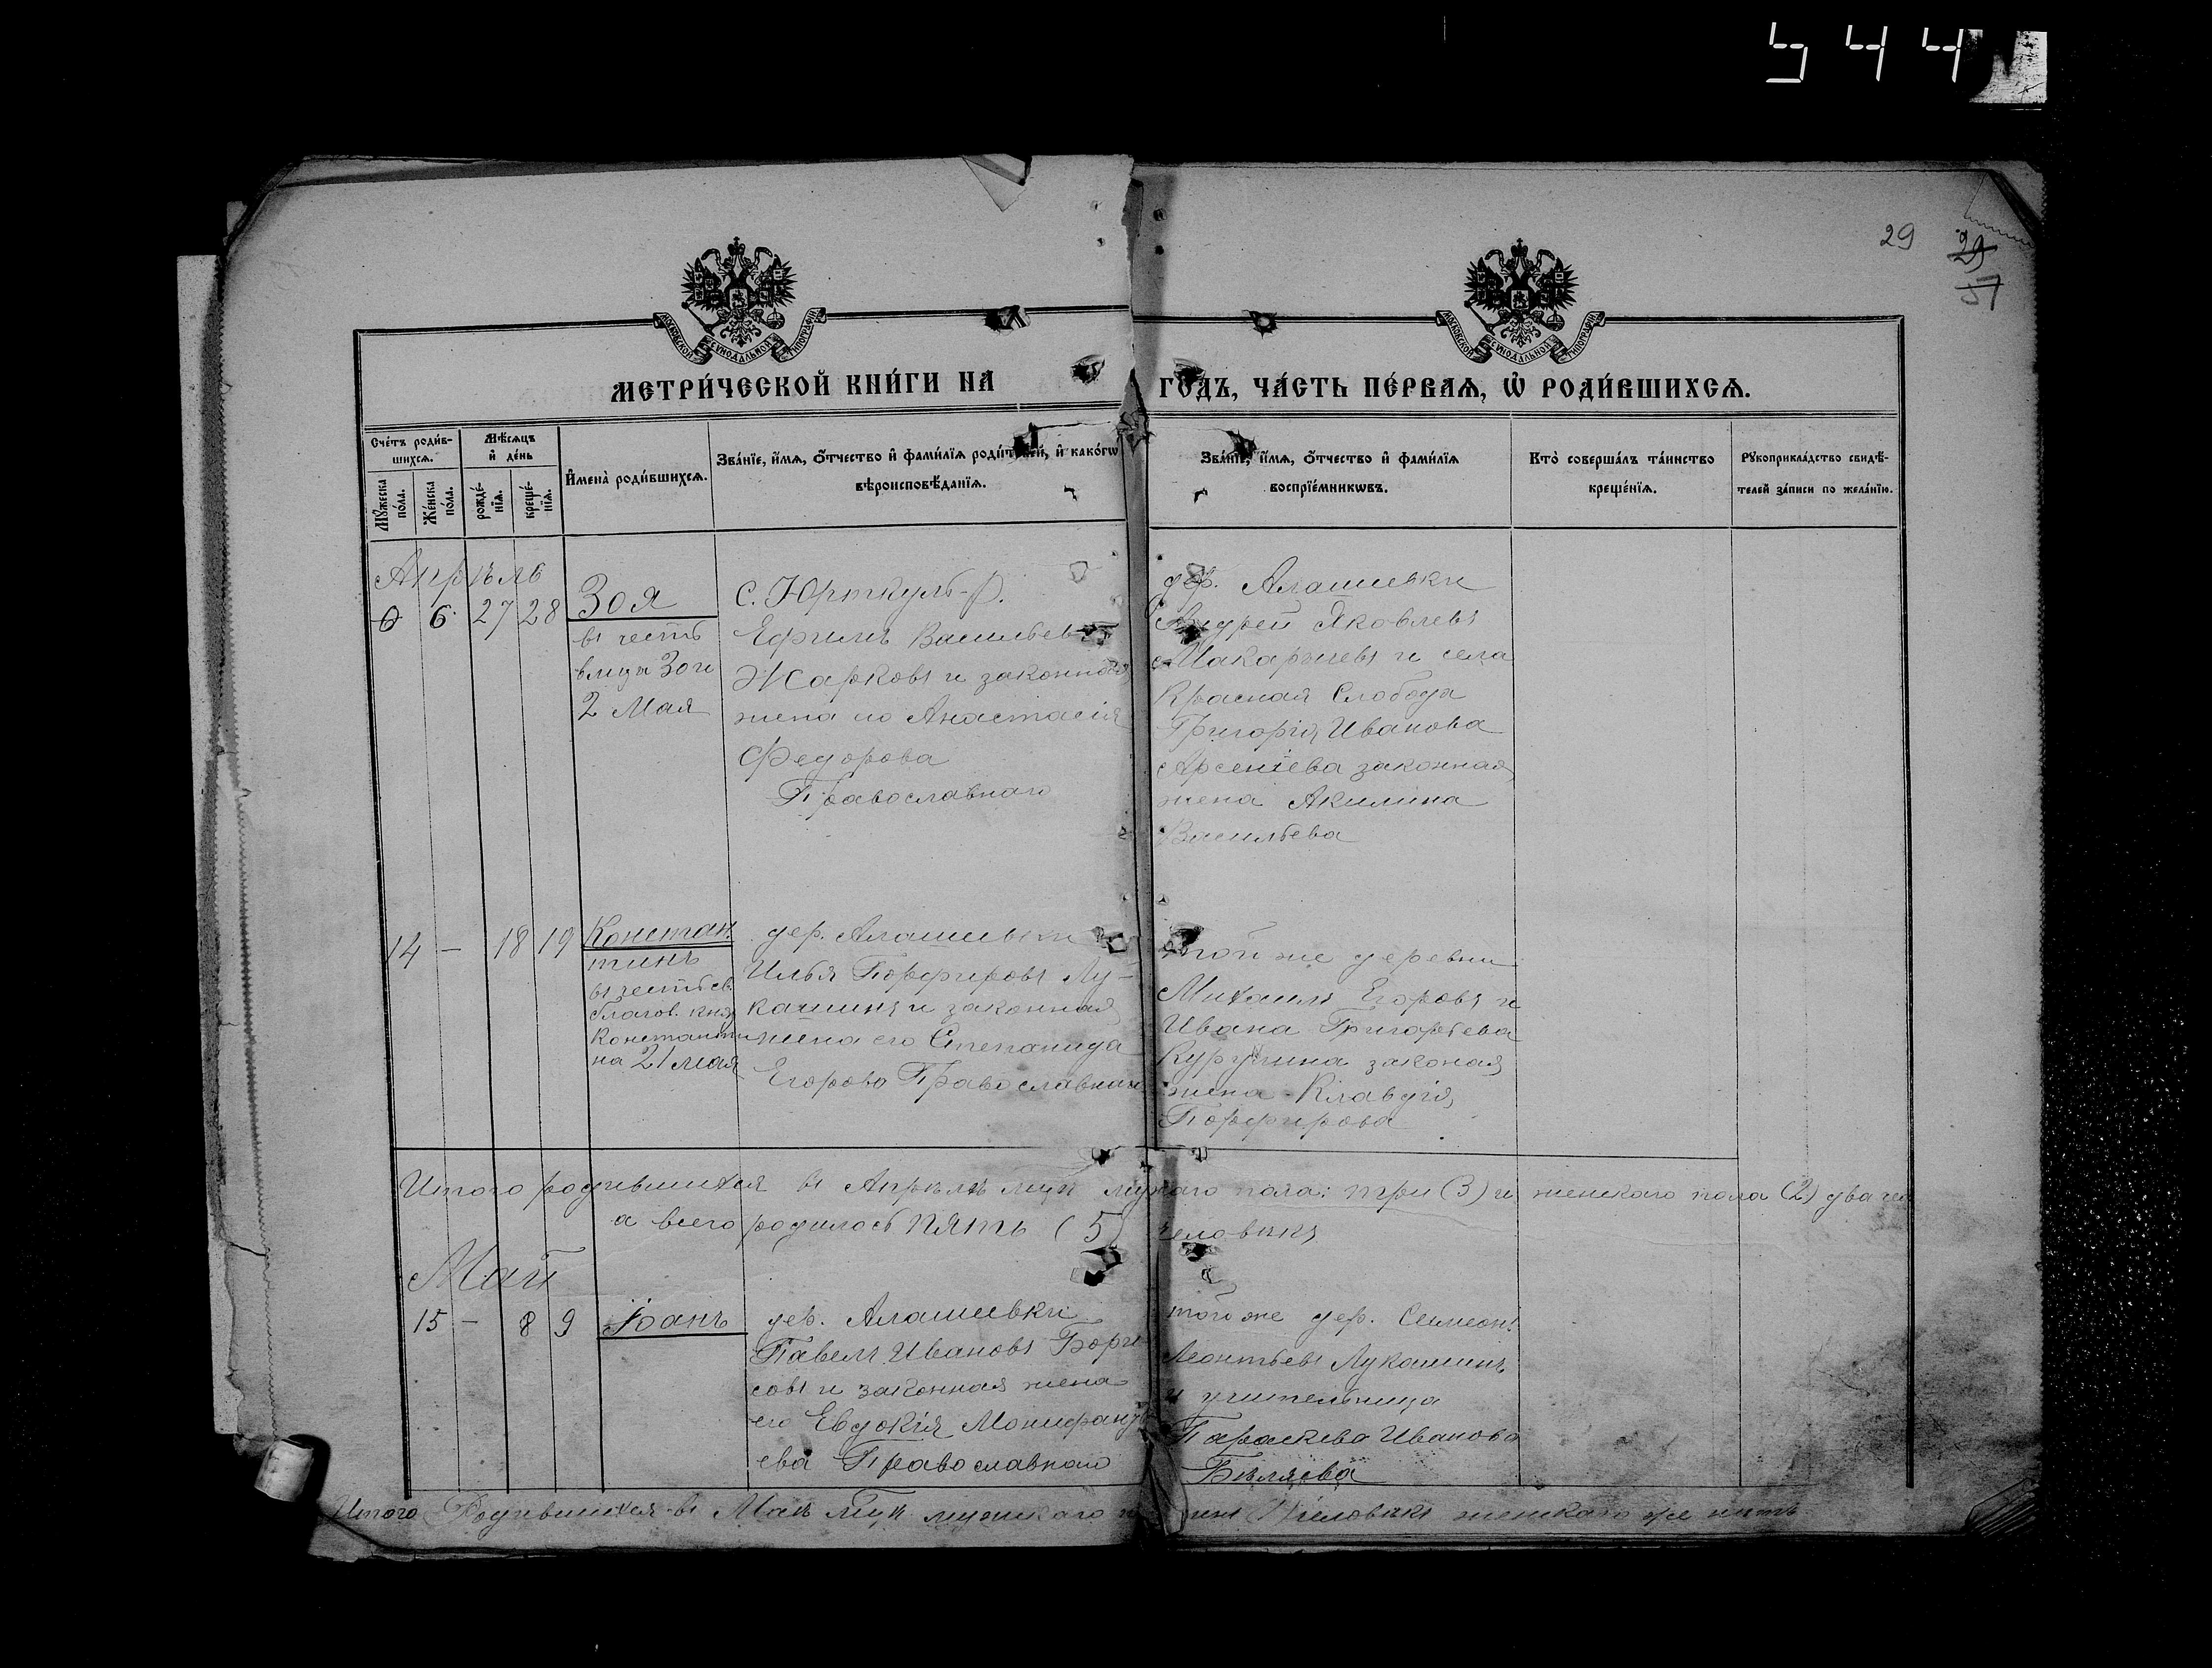 544
29
29
57
МОСКОВСКОЙ СѴНОДАЛЬНОЙ ТИПОГРАФІИ
МОСКОВСКОЙ СѴНОДАЛЬНОЙ ТИПОГРАФІИ
МЕТРИ́ЧЕСКОЙ КНИ́ГИ НА ГОДЪ, ЧА́СТЬ ПЕ́РВАѦ, Ѡ҆ РОДИ́ВШИХСѦ.
Сче́тъ роди́в-
шихсѧ.
Мѣ́сѧцъ
и҆ де́нь
Мꙋ́жеска
по́ла.
Же́нска
по́ла.
рожде́-
нїѧ.
креще́-
нїѧ.
И҆мена̀ роди́вшихсѧ.
Зва́нїе, и҆́мѧ, ѻ҆́тчество и҆ фами́лїѧ роди́телей, и҆ како́гѡ
вѣроисповѣ́данїѧ.
Зва́нїе, и҆́мѧ, ѻ҆́тчество и҆ фами́лїѧ
воспрїе́мникѡвъ.
Кто̀ соверша́лъ та́инство
креще́нїѧ.
Рꙋкоприкла́дство свидѣ́-
телей за́писи по жела́нїю.
Апрѣль
6 27 28 Зоя
въ честь
вмцы Зои
2 Мая
с. Юрткуль-р.
Ефимъ Васильевъ
Жарковъ и законная
жена его Анастасія
Федорова
Православнаго
дер. Алашевки
Андрей Яковлевъ
Макарычевъ и села
Красная Слобода
Григорія Иванова
Арсеніева законная
жена Акилина
Васильева
14 — 18 19 Констан.
тинъ
въ честь св.
благов. кня
Константи
на 21 мая
дер. Алашевки
Илья Порфировъ Лу-
кашинъ и законная
жена его Степанида
Егорова Православнаго
той же деревни
Михаилъ Егоровъ и
Ивана Григорьева
законая
жена Клавдія
Порфирова
Итого родившихся въ Апрѣлѣ мцѣ мужаго пола: три (3) и женскаго пола (2) два чел
а всего родилось пять (5) человѣкъ
Май
15 — 8 9 Іоанъ
дер. Алашевки
Павелъ Ивановъ Бори
совъ и законная жена
его Евдокія
ева Православнаго
той же дер. Симеонъ
Леонтьевъ Лукашинъ
и учительница
Параскева Иванова
Бѣляева
Итого Родившихся въ Маѣ мцѣ мужскаго человѣкъ женскаго же нѣтъ